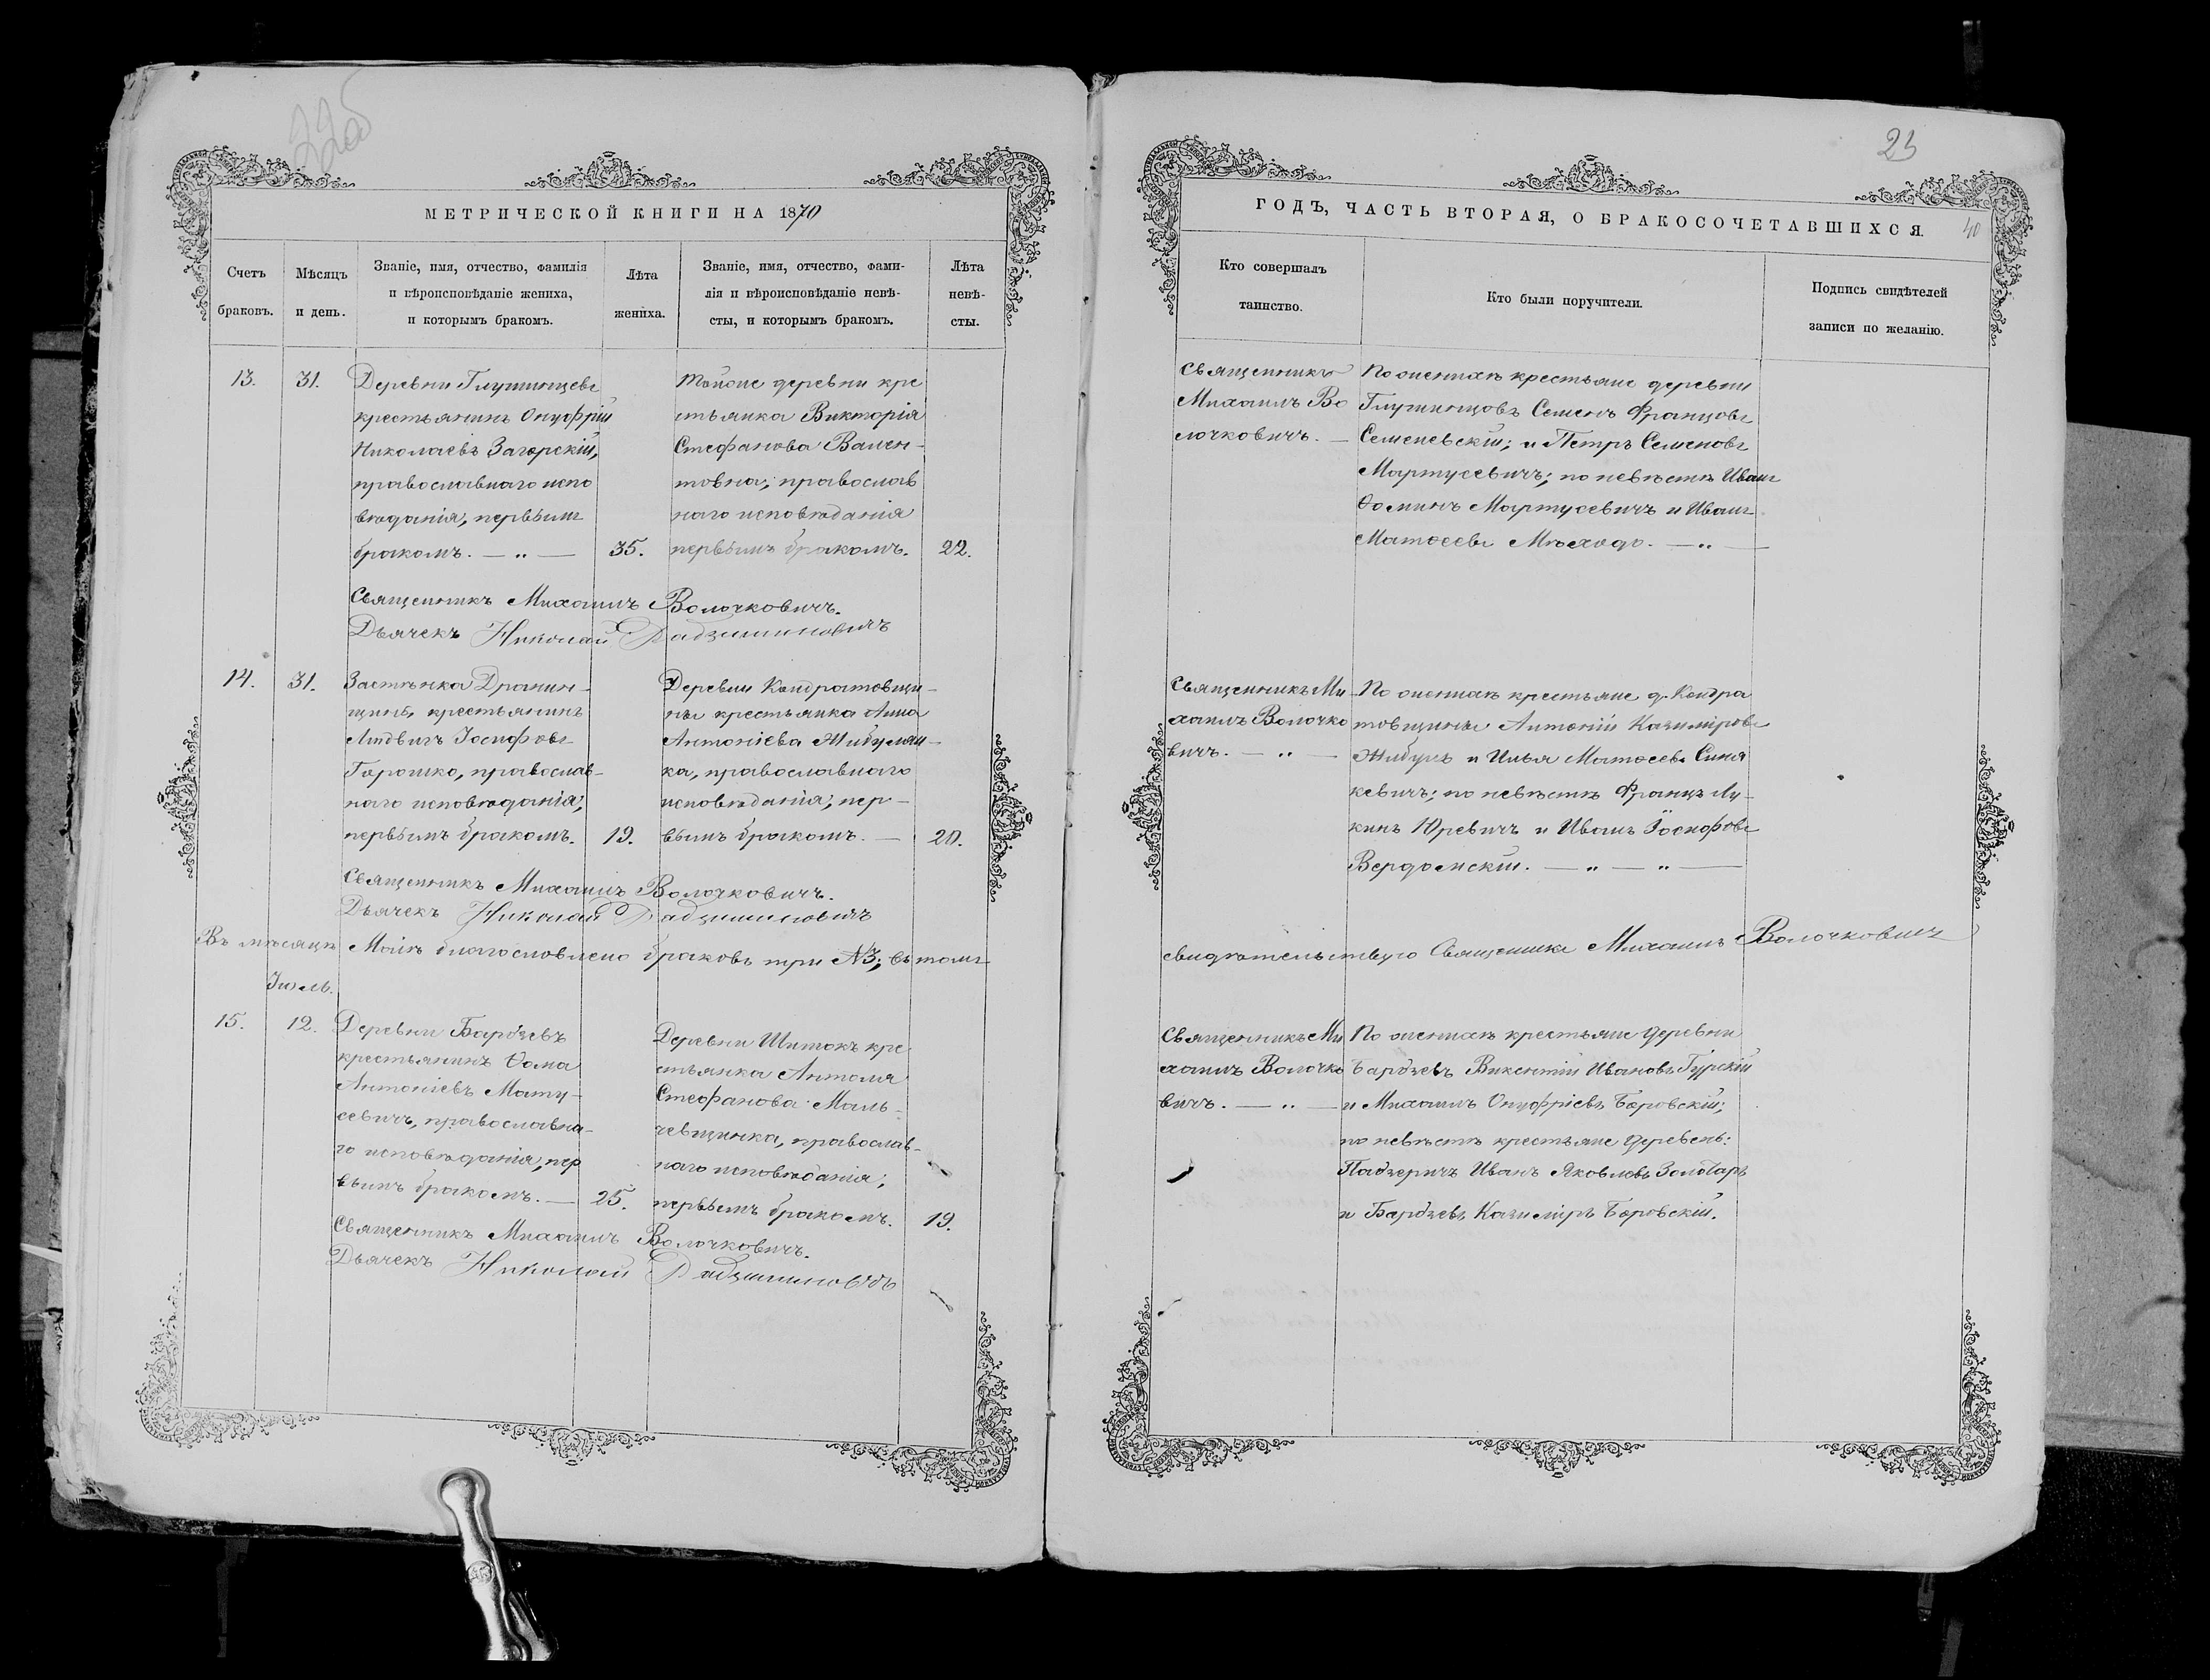 226
МЕТРИЧЕСКОЙ КНИГИ НА 1870
Счетъ браковъ.
Мѣсяцъ и день.
Званіе, имя, отчество, фамилія
и вѣроисповѣданіе жениха,
и которымъ бракомъ.
Лѣта жениха.
Званіе, имя, отчество, фами-
лія и вѣроисповѣданіе невѣ-
сты, и которымъ бракомъ.
Лѣта
невѣ-
сты.
13.
31.
Деревни Глушинцевъ
крестьянинъ Онуфрій
Николаевъ Загорскій,
православнаго испо
вѣданія, первымъ
бракомъ. — „ —
35.
тойоже деревни кре
стьянка Викторія
Стефанова Вален-
товна; православ
наго исповѣданія
первымъ бракомъ.
22.
Священникъ Михаилъ Волочковичъ.
Дьячекъ Николай
14.
31.
Застѣнка Дранин-
щины крестьянинъ
Людвигъ Іосифовъ
Горошко, православ-
наго исповѣданія,
первымъ бракомъ.
19.
Деревни Кондратовщи-
ны крестьянка Анна
Антоніева Жибуляи-
ка, православнаго
исповѣданія; пер-
вымъ бракомъ. —
20.
Священникъ Михаилъ Волочковичъ.
Дьячекъ Николай
Въ мѣсяцѣ Маіѣ благословлено браковъ три №3; въ томъ
Іюль.
15.
12.
Деревни Бардзевъ
крестьянинъ Ѳома
Антоніевъ Мату-
севичъ, православна-
го исповѣданія, пер
вымъ бракомъ. —
25.
Деревни Шитокъ кре
стьянка Антоля
Стефанова Маль-
чевщинка, православ-
наго исповѣданія;
первымъ бракомъ.
19.
Священникъ Михаилъ Волочковичъ.
Дьячекъ Николай
23
ГОДЪ, ЧАСТЬ ВТОРАЯ, О БРАКОСОЧЕТАВШИХСЯ.
40
Кто совершалъ
таинство.
Кто были поручители.
Подпись свидѣтелей
записи по желанію.
Священникъ
Михаилъ Во
лочковичъ. —
По женихѣ крестьяне деревни
Глушинцовъ Семенъ Францовъ
Семеневскій; и Петръ Семеновъ
Мартусевичъ; по невѣстѣ Иванъ
Ѳоминъ Мартусевичъ и Иванъ
Матѳеевъ Мѣходо. — „ —
Священникъ Ми
хаилъ Волочко
вичъ. — „ —
По женихѣ крестьяне д. Кондра
товщины Антоній Казиміровъ
Жибуръ и Илья Матѳеевъ Синя
кевичъ; по невѣстѣ Францъ Лу-
кинъ Юревичъ и Иванъ Іосифовъ
Вердомскій. — „ — „ —
свидѣтельствую Священникъ Михаилъ Волочковичъ
Священникъ Ми
хаилъ Волочко
вичъ. — „ —
По женихѣ крестьяне деревни
Бардзевъ Викентій Ивановъ Гурскій
и Михаилъ Онуфріевъ Боровскій;
по невѣстѣ крестьяне деревень:
Падзеричъ Иванъ Яковлевъ Золотарь
и Бардзевъ Казиміръ Боровскій.